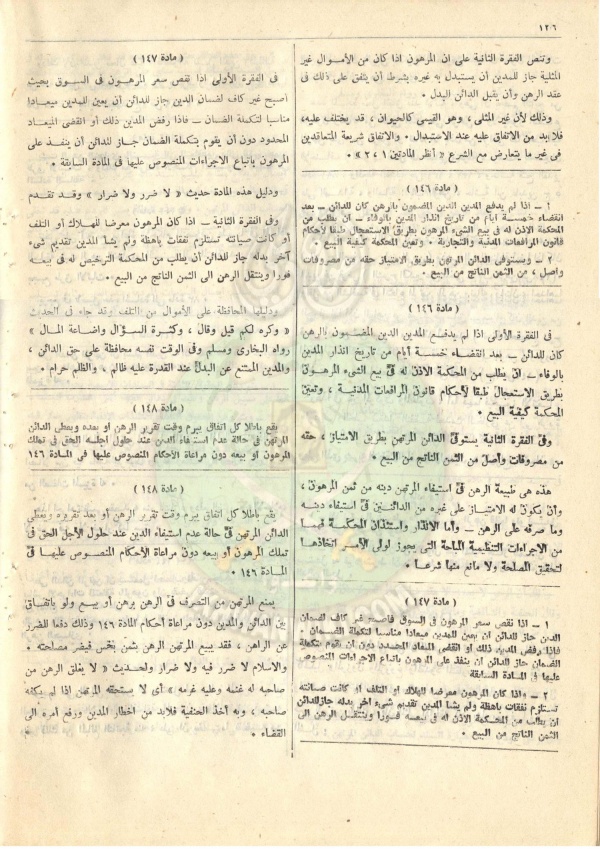 ١٢٦
وتنص الفقرة الثانية على ان المرهون اذا كان من الأموال غير
المثلية جاز للمدين أن يستبدل به غيره بشرط أن يتفق على ذلك فى
عقد الرهن وأن يقبل الدائن البدل ٠
وذلك لأن غير المثلى ، وهو القيمى كالحيوان ، قد يختلف عليه،
فلابد من الاتفاق عليه عند الاستبدال ٠ والاتفاق شريعة المتعاقدين
فى غير ما يتعارض مع الشرع « أنظر المادتين ١ ، ٢٧ » ٠
( مادة ١٤٦ )
١ – اذا لم يدفع المدين الدين المضمون بالرهن كان للدائن – بعد
انقضاء خمسة أيام من تاريخ انذار المدين بالوفاء – أن يطلب من
المحكمة الاذن له فى بيع الشىء المرهون بطريق الاستعجال طبقا لأحكام
قانون المرافعات المدنية والتجارية ٠ وتعين المحكمة كيفية البيع ٠
٢ – ويستوفى الدائن المرتهن بطريق الامتياز حقه من مصروفات
وأصل ، من الثمن الناتج من البيع ٠
( مادة ١٤٦ )
فى الفقرة الأولى اذا لم يدفع المدين الدين المضمون بالرهن
كان للدائن – بعد انقضاء خمسة أيام من تاريخ انذار المدين
بالوفاء – ان يطلب من المحكمة الاذن له فى بيع الشىء المرهون
بطريق الاستعجال طبقا لأحكام قانون المرافعات المدنية ، وتعين
المحكمة كيفية البيع ٠
وفى الفقرة الثانية يستوفى الدائن المرتهن بطريق الامتياز ، حقه
من مصروفات وأصل من الثمن الناتج من البيع ٠
هذه هى طبيعة الرهن فى استيفاء المرتهن دينه من ثمن المرهون،
وأن يكون له الامتياز على غيره من الدائنين فى استيفاء دينه
وما صرفه على الرهن – وأما الانذار واستئذان المحكمة فهما
من الاجراءات التنظيمية المباحة التى يجوز لولى الأمر اتخاذها
لتحقيق المصلحة ولا مانع منها شرعا ٠
( مادة ١٤٧ )
١ – اذا نقص سعر المرهون فى السوق فاصبح غير كاف لضمان
الدين جاز للدائن ان يعين للمدين ميعادا مناسبا لتكملة الضمان ٠
فاذا رفض المدين ذلك أو انقضى الميعاد المحدد دون ان يقوم بتكملة
الضمان جاز للدائن ان ينفذ على المرهون باتباع الاجراءات المنصوص
عليها فى المادة السابقة
٢ – اذا كان المرهون معرضا للهلاك او التلف او كانت صيانته
تستلزم نفقات باهظة ولم يشا المدين تقديم شىء آخر بدله جاز للدائن
ان يطلب من المحكمة الاذن له فى بيعه فورا وينتقل الرهن الى
الثمن الناتج من البيع ٠
( مادة ١٤٧ )
فى الفقرة الأولى اذا نقص سعر المرهون فى السوق بحيث
أصبح غير كاف لضمان الدين جاز للدائن أن يعين للمدين ميعادا
مناسبا لتكملة الضمان – فاذا رفض المدين ذلك أو انقضى الميعاد
المحدود دون أن يقوم بتكملة الضمان جاز للدائن أن ينفذ على
المرهون باتباع الاجراءات المنصوص عليها فى المادة السابقة ٠
ودليل هذه المادة حديث « لا ضرر ولا ضرار » وقد تقدم
وفى الفقرة الثانية – اذا كان المرهون معرضا للهلاك أو التلف
أو كانت صيانته تستلزم نفقات باهظة ولم يشا المدين تقديم شىء
آخر بدله جاز للدائن أن يطلب من المحكمة الترخيص له فى بيعه
فورا وينتقل الرهن الى الثمن الناتج من البيع ٠
ودليلها المحافظة على الأموال من التلف وقد جاء فى الحديث
« وكره لكم قيل وقال ، وكثيرة السؤال واضاعة المال »
رواه البخارى ومسلم وفى الوقت نفسه محافظة على حق الدائن ،
والمدين الممتنع عن البدل عند القدرة عليه ظالم ، والظلم حرام ٠
( مادة ١٤٨ )
يقع باطلا كل اتفاق يبرم وقت تقرير الرهن او بعده ويعطى الدائن
المرتهن فى حالة عدم استيفاء الدين عند حلول اجله الحق فى تملك
المرهون او بيعه دون مراعاة الأحكام المنصوص عليها فى المادة ١٤٦
( مادة ١٤٨ )
يقع باطلا كل اتفاق يبرم وقت تقرير الرهن أو بعد تقريره ويعطى
الدائن المرتهن فى حالة عدم استيفاء الدين عند حلول الأجل الحق فى
تملك المرهون أو بيعه دون مراعاة الأحكام المنصوص عليها فى
المادة ١٤٦ ٠
يمنع المرتهن من التصرف فى الرهن برهن أو بيع ولو باتفاق
بين الدائن والمدين دون مراعاة أحكام المادة ١٤٦ وذلك دفعا للضرر
عن الراهن ، فقد يبيع المرتهن الرهن بثمن بخس فيضر مصالحه ٠
والاسلام لا ضرر فيه ولا ضرار ولحديث « لا يغلق الرهن من
صاحبه له غنمه وعليه غرمه » أى لا يستحقه المرتهن اذا لم يفكه
صاحبه ، وبه أخذ الحنفية فلابد من اخطار المدين ورفع أمره الى
القضاء ٠